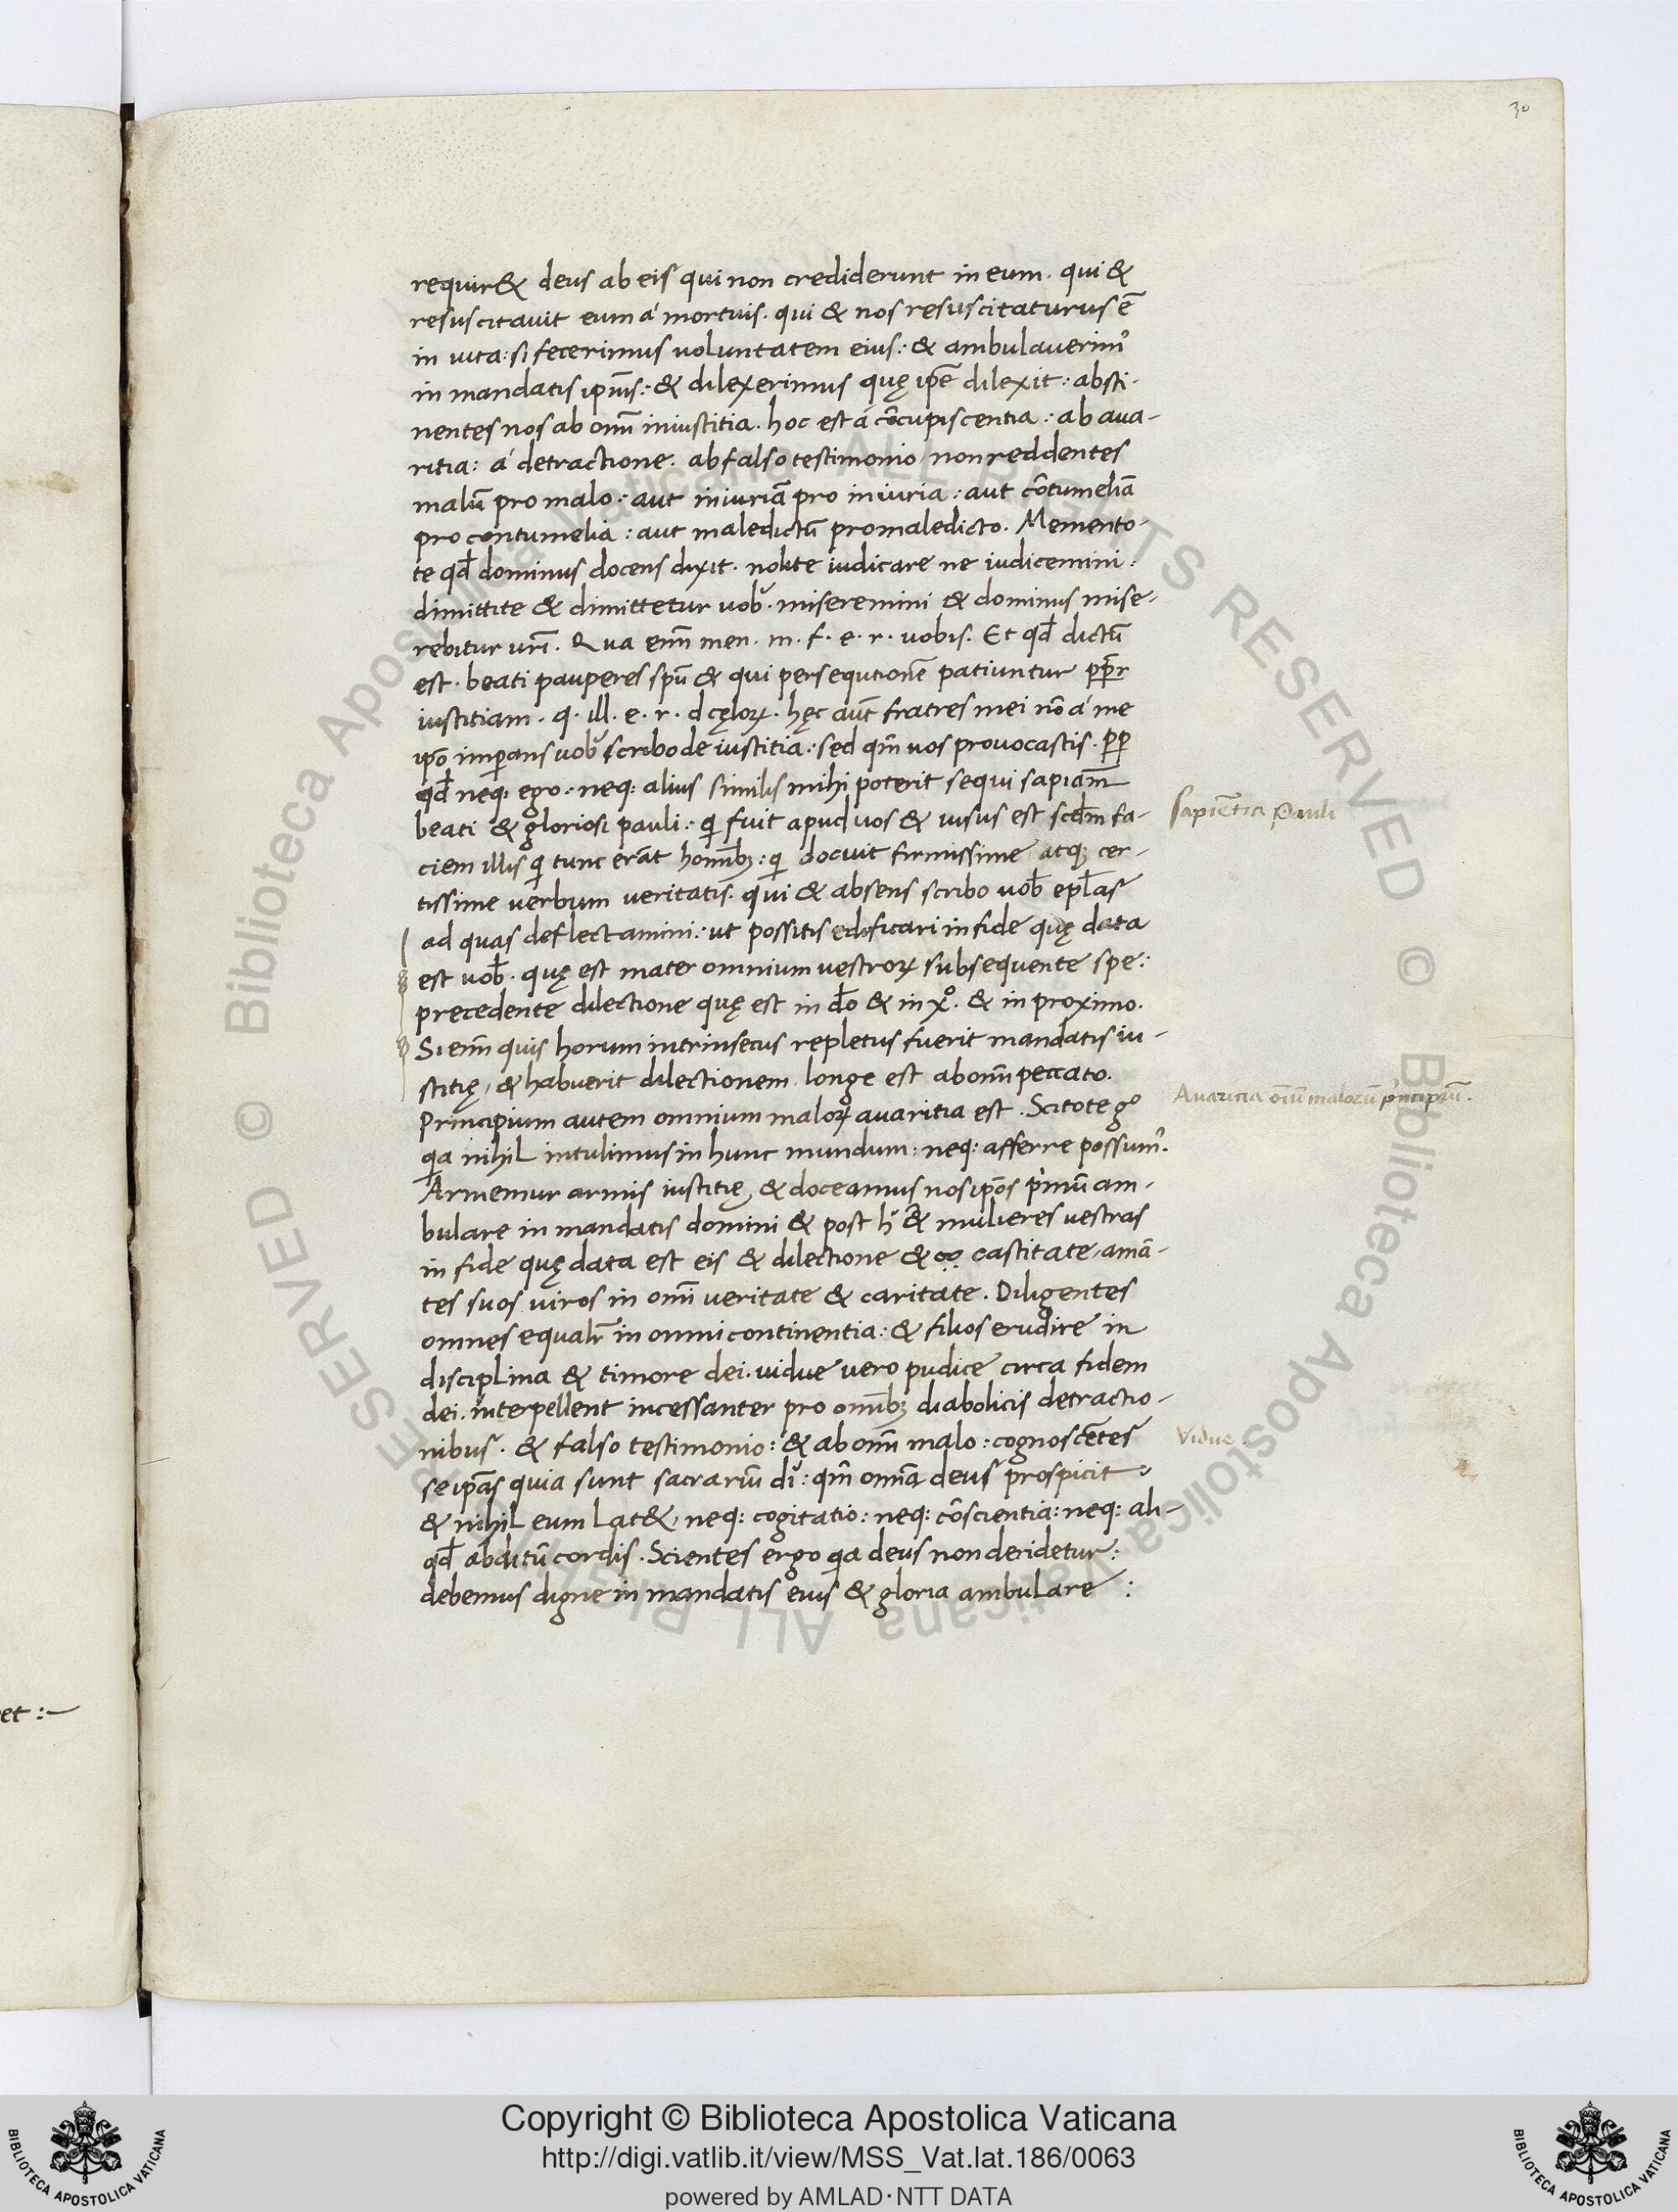 30
requir& deus ab eis qui non crediderunt in eum. qui &
resuscitauit eum á mortuis. qui & nos resuscitaturus ē
in uita: si fecerimus uoluntatem eius: & ambulauerim᾽
in mandatis ipsius: & dilexerimus quę ipse dilexit: absti-
nentes nos ab omī iniustitia. hoc est á cōcupiscentia: ab aua-
ritia: á detractione. ab falso testimonio, non reddentes
malū pro malo: aut iniuriā pro iniuria: aut cōtumeliā
pro contumelia: aut maledictū pro maledicto. Memento-
te qđ dominus docens dixit. nolite iudicare ne iudicemini:
dimittite & dimittetur uob. miseremini & dominus mise-
rebitur urī. Qua enī men. m. f. e. r. uobis. Et qđ dictū
est. beati pauperes spū & qui persequtionē patiuntur ppr
iustitiam. q. ill. e. r. d cęloꝝ. hęc aut fratres mei nō á me
ipō imperans uob scribo de iustitia: sed qm̄ uos prouocastis. pp
qđ neq; ego: neq; alius similis mihi poterit sequi sapiam
beati & gloriosi pauli: q fuit apud uos & uisus est scdm fa-
ciem illis q tunc erāt homīb;: q docuit firmissime atq; cer-
tissime uerbum ueritatis. qui & absens scribo uob epłas
ad quas deflectamini: ut possitis edificari in fide quę data
est uob. quę est mater omnium uestroꝝ subsequente spe:
precedente dilectione quę est in do & in xo. & in proximo.
Si enī quis horum intrinsecus repletus fuerit mandatis iu-
stitię, & habuerit dilectionem longe est ab omī peccato.
Principium autem omnium maloꝝ auaritia est. Scitote gº
qa nihil intulimus in hunc mundum: neq; afferre possum᾽.
Armemur armis iustitię, & doceamus nos ipōs pimū am-
bulare in mandatis domini & post h & mulieres uestras
in fide quę data est eis & dilectione & castitate, amā-
tes suos uiros in omī ueritate & caritate. Diligentes
omnes equalr in omni continentia: & filios erudire in
disciplina & timore dei. uidue uero pudice circa fidem
dei. interpellent incessanter pro omīb; diabolicis detractio-
nibus. & falso testimonio: & ab omī malo: cognoscētes
se ipas quia sunt sacrariū di: qm̄ omīa deus prospicit
& nihil eum lat&, neq; cogitatio: neq; cōscientia: neq; ali-
qđ abditū cordis. Scientes ergo qa deus non deridetur:
debemus digne in mandatis eius & gloria ambulare:
Sapiētia Pauli
Auaritia oīū malorū principiū.
Vidue
et :-
© Biblioteca Apostolica Vaticana ALL RIGHTS RESERVED
© Biblioteca Apostolica Vaticana ALL RIGHTS RESERVED
Copyright © Biblioteca Apostolica Vaticana
http://digi.vatlib.it/view/MSS_Vat.lat.186/0063
powered by AMLAD·NTT DATA
BIBLIOTECA APOSTOLICA VATICANA
BIBLIOTECA APOSTOLICA VATICANA